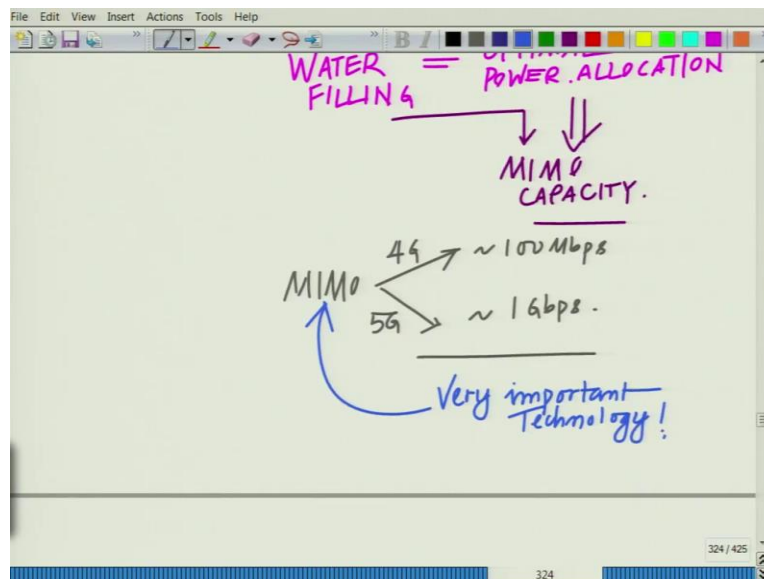 File Edit View Insert Actions Tools Help
WATER = OPTIMAL
FILLING POWER ALLOCATION
MIMO
CAPACITY.
4G ~ 100 Mbps
MIMO
5G ~ 1 Gbps.
Very important
Technology!
324 / 425
324